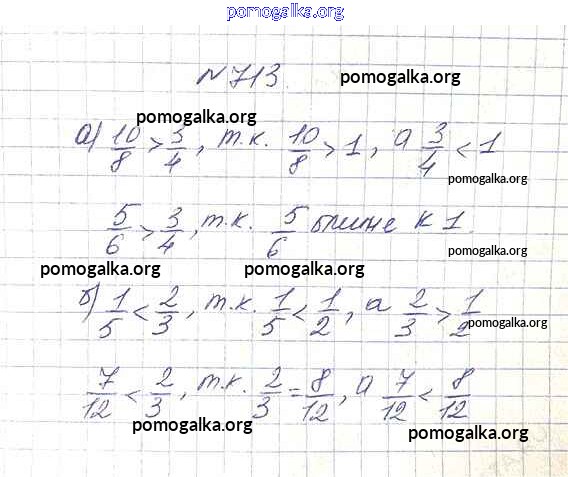 pomogalka.org
№ 713.
pomogalka.org
pomogalka.org
а) 10/8 > 3/4, т.к. 10/8 > 1, а 3/4 < 1
pomogalka.org
5/6 > 3/4, т.к. 5/6 ближе к 1.
pomogalka.org
pomogalka.org pomogalka.org
б) 1/5 < 2/3, т.к. 1/5 < 1/2, а 2/3 > 1/2
pomogalka.org
7/12 < 2/3, т.к. 2/3 = 8/12, а 7/12 < 8/12
pomogalka.org
pomogalka.org